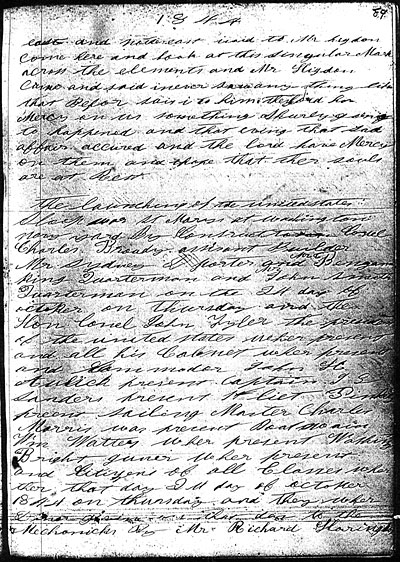 1844
89
east and northeast i said to Mr higdon
Come here and look at this Singular Mark
across the elements and Mr Higdon
Came and said i never saw any thing like
that Befor said i to him the lord hav
Mercy on us something Shurely going
to happened and that evning that Sad
affair accured and the lord have Mercy
on them and i hope that ther souls
are at Rest
the launching of the united states
Sloop war St Marys at washington
navy yard By Constructor
Charles Bready assistant Builder
Mr Sydney porter Benjam
king Quarterman and
Quarterman on the 24 day of
october on thursday and the
Hon John Tyler the presid
of the united states wher present
and all his Cabenet wher present
and Commodor John H
Aulick present Captain
Sanders present
preent sailing Master Charles
Morris was present Boatswain
Wm Watters wher present
Bright guner wher present
and Citizens of all Classes wher
ther that day 24 day of october
1844 on thursday and they wher
that day to the
Mechanicks By Mr Richard